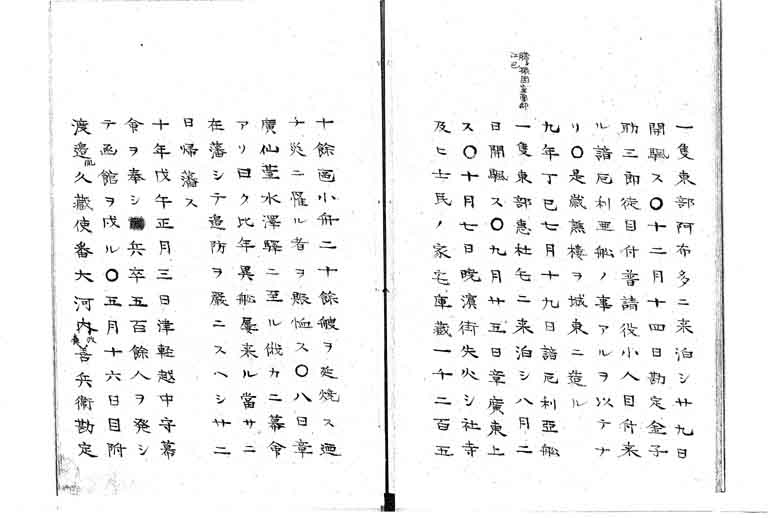 一隻東部阿布多ニ来泊シ廿九日
開颿ス〇十二月十四日勘定金子
助三郎徒目付普請役小人目付来
ル諳厄利亜舩ノ事アルヲ以テナ
リ〇是歳熊樓ヲ城東ニ造ル
九年丁巳七月十九日諳厄利亞舩
一隻東部惠杜乇ニ来泊シ八月二
日開颿ス〇九月廿五日章廣東上
ス〇十月七日晩濱街失火シ社寺
及ヒ士民ノ家宅庫蔵一千二百五
十餘區小舟二十餘艘ヲ延焼ス迺
チ災ニ罹ル者ヲ賑恤ス〇八日章
廣仙䑓水澤驛ニ至ル俄カニ幕命
アリ曰ク比年異舩屢来ル當サニ
在藩シテ邊防ヲ嚴ニスヘシ廿二
日帰藩ス
十年戊午正月三日津輕越中守幕
命ヲ奉シ兵卒五百餘人ヲ發シ
テ函館ヲ戍ル〇五月十六日目附
渡邉久藏使番大河内善兵衛勘定